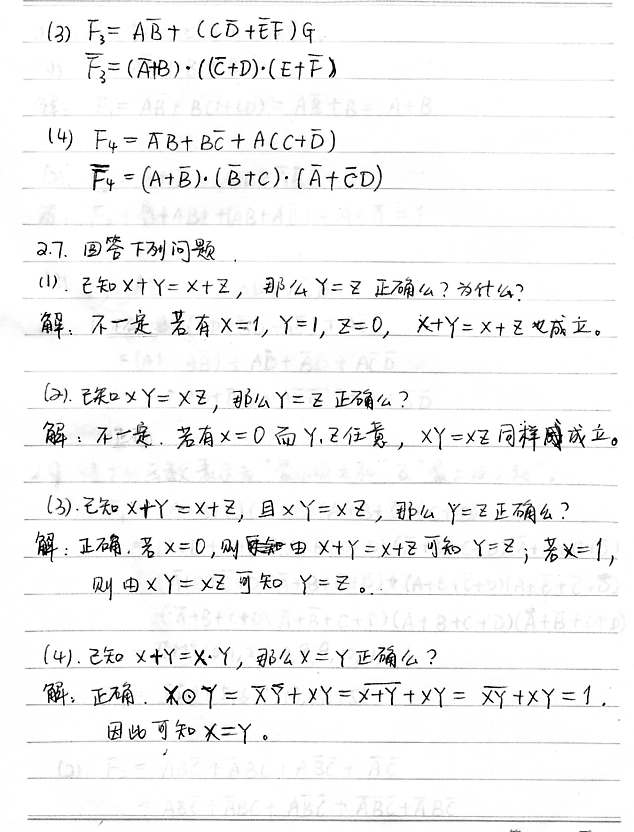 (3) F₃ = AB̅ + (CD̅ + E̅F)G
F̅₃ = (A̅+B)·((C̅+D)·(E+F̅)
(4) F₄ = A̅B + BC̅ + A(C+D̅)
F̅₄ = (A+B̅)·(B̅+C)·(A̅+C̅D)
2.7. 回答下列问题
(1). 已知X+Y=X+Z, 那么Y=Z正确么?为什么?
解: 不一定 若有X=1, Y=1, Z=0, X+Y=X+Z也成立。
(2). 已知XY=XZ, 那么Y=Z正确么?
解: 不一定. 若有X=0而Y.Z任意, XY=XZ同样成立。
(3). 已知X+Y=X+Z, 且XY=XZ, 那么Y=Z正确么?
解: 正确. 若X=0, 则由X+Y=X+Z可知Y=Z; 若X=1,
则由XY=XZ可知Y=Z。
(4). 已知X+Y=X·Y, 那么X=Y正确么?
解: 正确. X⊙Y = X̅Y̅+XY = \overline{X+Y}+XY = \overline{XY}+XY = 1.
因此可知X=Y。